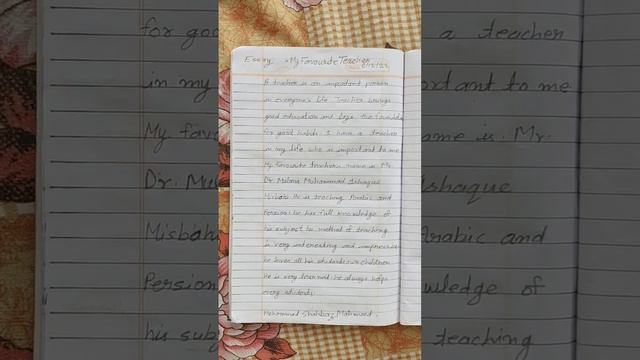 Essay. My Favourite Teacher
A teacher is an important person
in everyone's life Teacher brings
good education and lays the foundation
for good habits. I have a teacher
in my life who is important to me
My favourite teachers name is Mr.
Dr. Mulana Mohammad Ishaque
Misbahi He is teaching Arabic and
Persion. he has full knowledge of
his subject method of teaching
is very interesting and impressive
he loves all his students children
He is very learned. he always helps
every students.
Mohammad Shahbaz Mahmood.
for good
a teacher
in my
important to me
My favo
name is. Mr.
Dr. Mu
Ishaque
Misbah
Arabic and
Persion
knowledge of
his sub
teaching